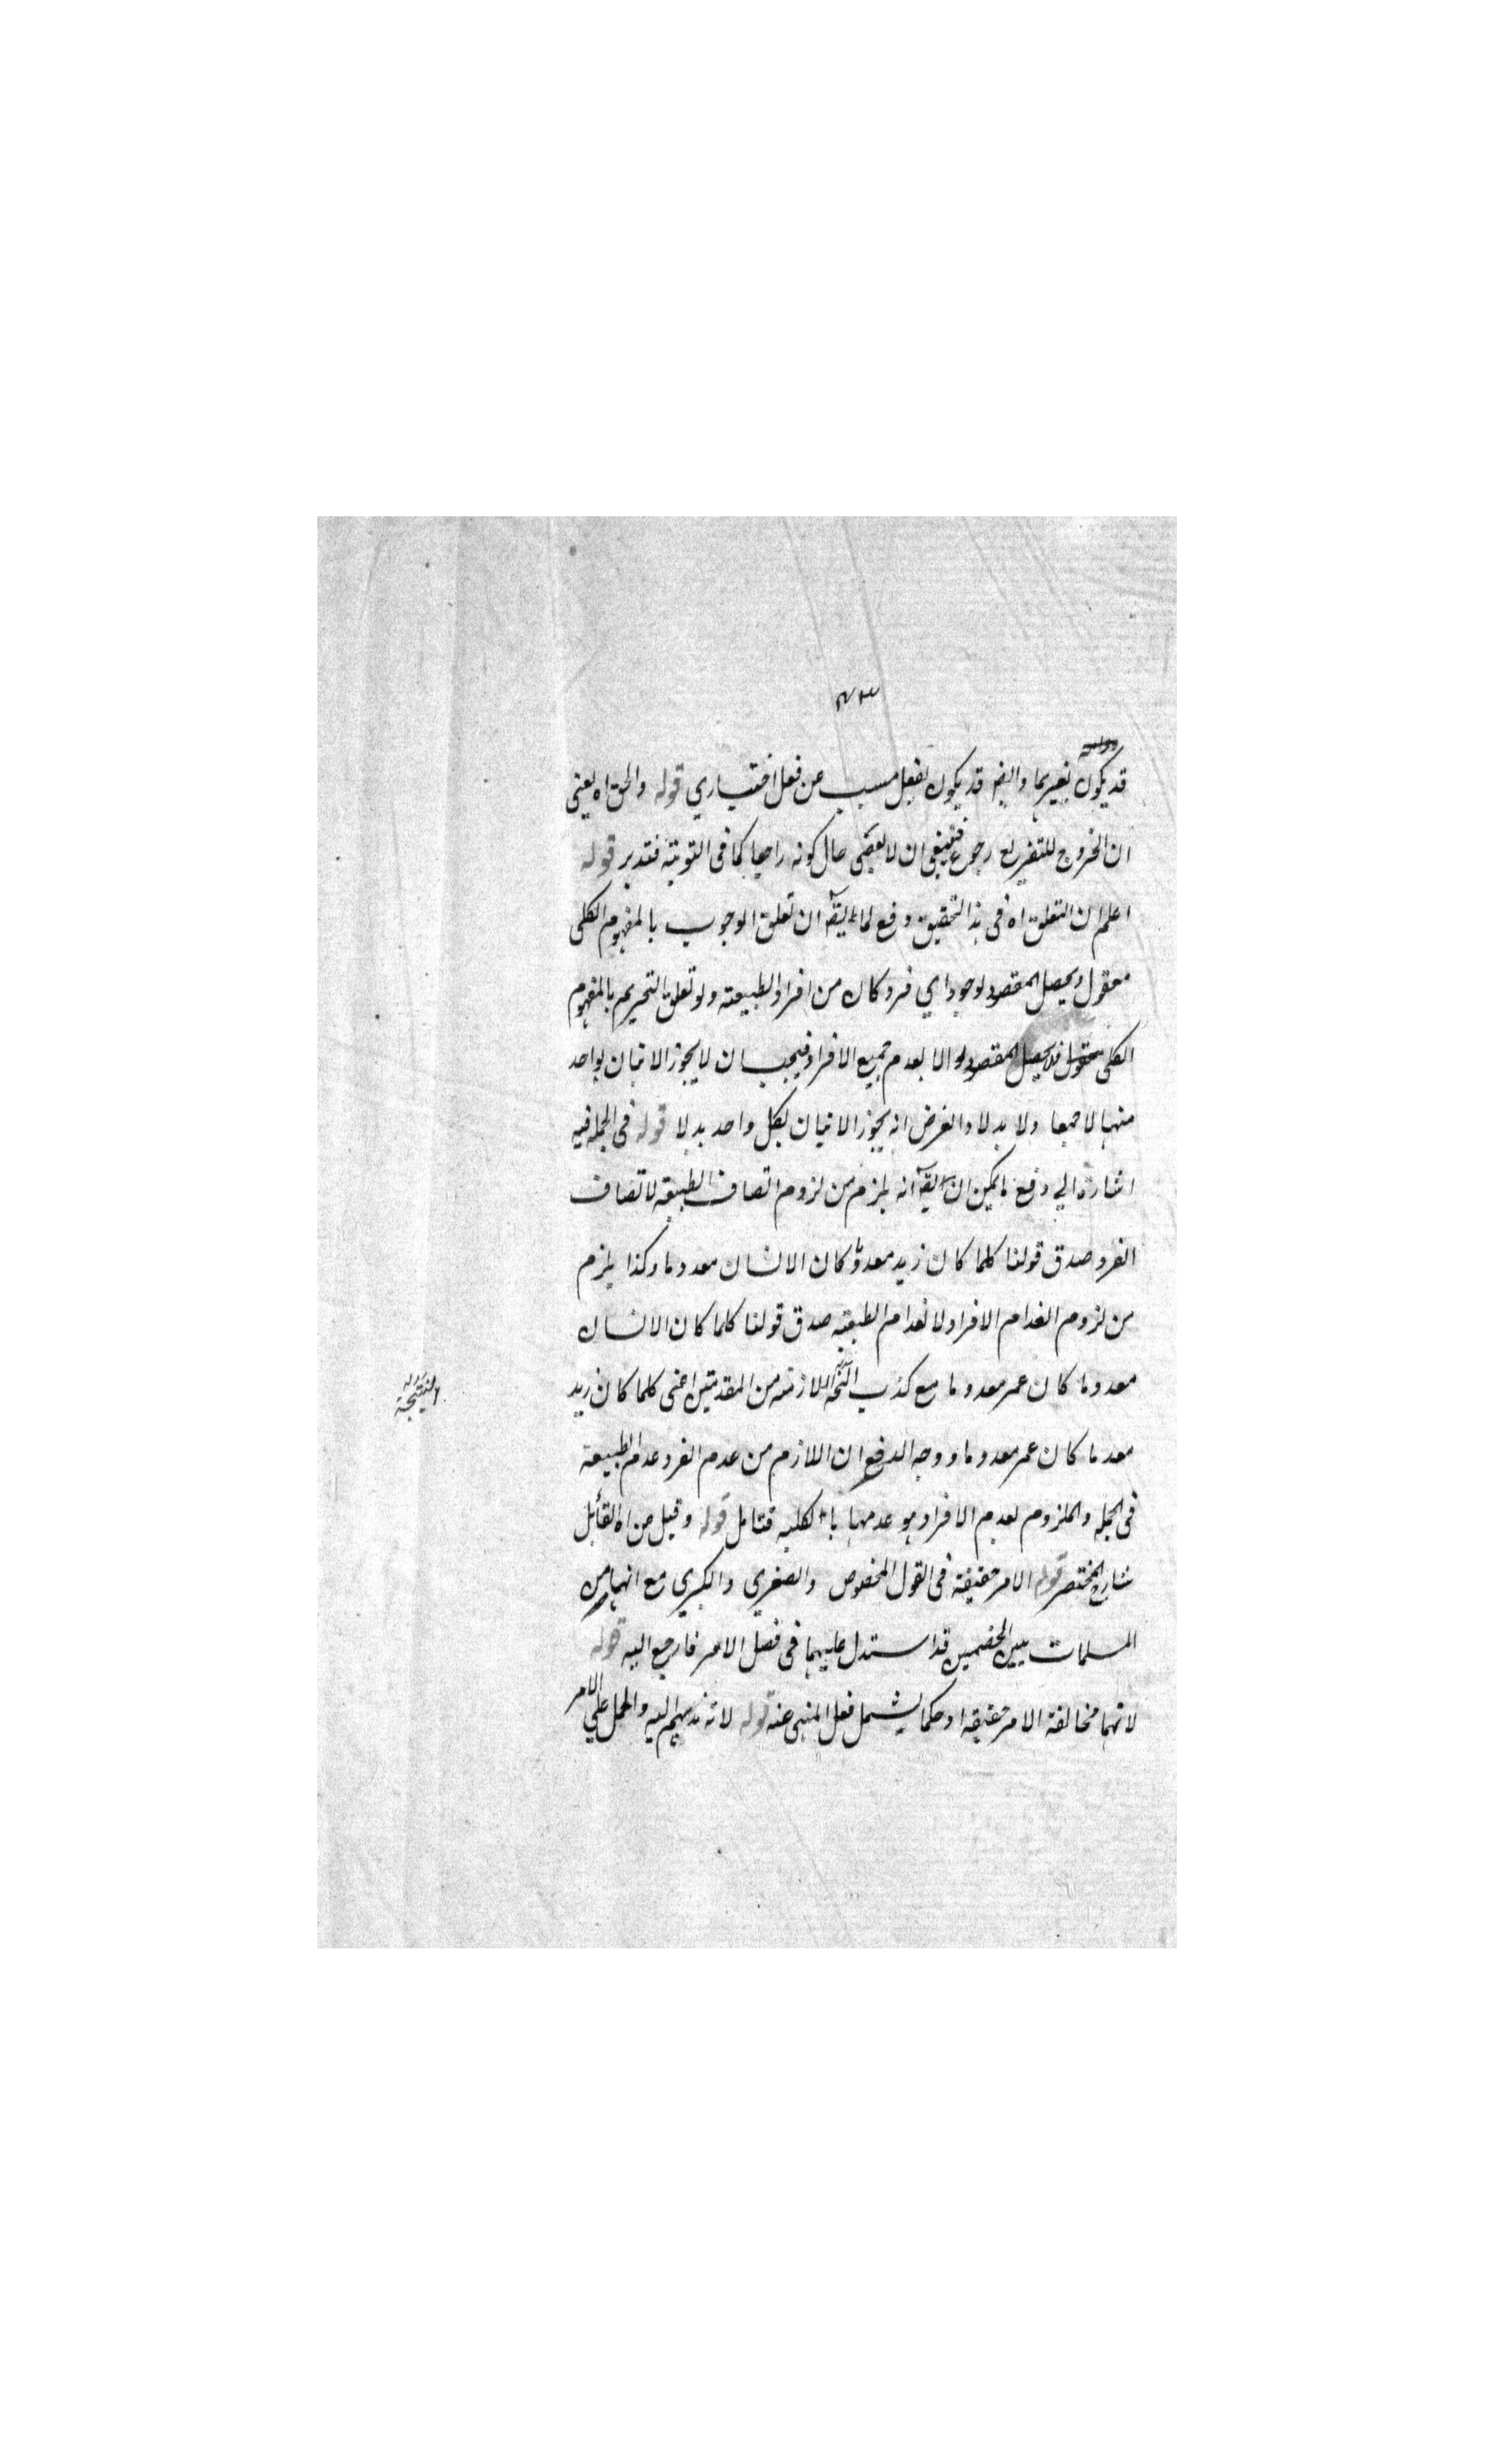 ٧٣
قد يكون بغيرها وايضا قد يكون لفعل مسبب عن فعل اختياري قوله والحق اه يعنى
ان الخروج للتفريع رجوع فينبغى ان لا يعصى حال كونه راجعا كما فى التوبة فتدبر قوله
اعلم ان التعلق اه فى هذا التحقيق دفع لما يقه ان تعلق الوجوب بالمفهوم الكلى
معقول ويحصل المقصود بوجود اي فرد كان من افراد الطبيعة ولو تعلق التحريم بالمفهوم
الكلى فلا يحصل المقصود الا بعدم جميع الافراد فيجب ان لا يجوز الاتيان بواحد
منها لا جمعا ولا بدلا والغرض انه يجوز الاتيان بكل واحد بدلا قوله فى الجملة فيه
اشارة الي دفع ما يمكن ان يقه انه يلزم من لزوم اتصاف الطبيعة لاتصاف
الفرد صدق قولنا كلما كان زيد معدوما كان الانسان معدوما وكذا يلزم
من لزوم انعدام الافراد لانعدام الطبيعة صدق قولنا كلما كان الانسان
معدوما كان عمر معدوما مع كذب النتيجة اللازمة من المقدمتين اعنى كلما كان زيد
معدما كان عمر معدوما ووجه الدفع ان اللازم من عدم الفرد عدم الطبيعة
فى الجملة والملزوم لعدم الافراد هو عدمها بالكلية فتامل قوله وقيل من اه القائل
شارح المختصر قوله الامر حقيقة فى القول المخصوص والصغري والكبري مع انهما من
المسلمات بين الخصمين قد استدل عليهما فى فصل الامر فارجع اليه قوله
لانها مخالفة الامر حقيقة او حكما ليشمل فعل المنهى عنه قوله لانه والحمل علي الامر
النتيجة